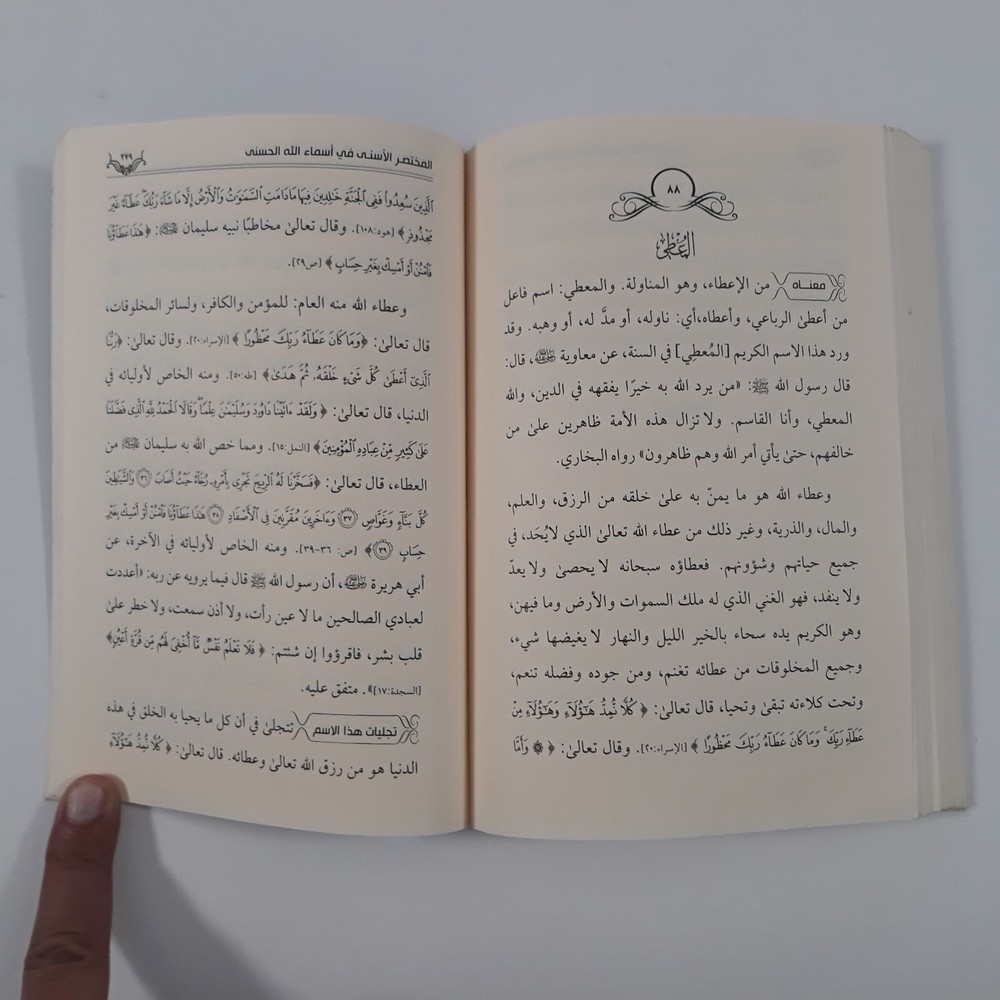 ٨٨
المُعْطِي
معنـــاه من الإعطاء، وهو المناولة. والمعطي: اسم فاعل
من أعطىٰ الرباعي، وأعطاه،أي: ناوله، أو مدَّ له، أو وهبه. وقد
ورد هذا الاسم الكريم [المُعطِي] في السنة، عن معاوية ﵁، قال:
قال رسول الله ﷺ: «من يرد الله به خيرًا يفقهه في الدين، والله
المعطي، وأنا القاسم. ولا تزال هذه الأمة ظاهرين علىٰ من
خالفهم، حتىٰ يأتي أمر الله وهم ظاهرون» رواه البخاري.
وعطاء الله هو ما يمنّ به علىٰ خلقه من الرزق، والعلم،
والمال، والذرية، وغير ذلك من عطاء الله تعالىٰ الذي لا يُحَد، في
جميع حياتهم وشؤونهم. فعطاؤه سبحانه لا يحصىٰ ولا يعدّ
ولا ينفد، فهو الغني الذي له ملك السموات والأرض وما فيهن،
وهو الكريم يده سحاء بالخير الليل والنهار لا يغيضها شيء،
وجميع المخلوقات من عطائه تغنم، ومن جوده وفضله تنعم،
وتحت كلاءته تبقىٰ وتحيا، قال تعالىٰ: ﴿ كُلًّا نُّمِدُّ هَٰٓؤُلَآءِ وَهَٰٓؤُلَآءِ مِنْ
عَطَآءِ رَبِّكَ ۚ وَمَا كَانَ عَطَآءُ رَبِّكَ مَحْظُورًا ﴾ [الإسراء:٢٠]. وقال تعالىٰ: ﴿ ۞ وَأَمَّا
المختصر الأسنى في أسماء الله الحسنى
٢٧٩
الَّذِينَ سُعِدُوا فَفِي الْجَنَّةِ خَٰلِدِينَ فِيهَا مَا دَامَتِ السَّمَٰوَٰتُ وَالْأَرْضُ إِلَّا مَا شَآءَ رَبُّكَ ۖ عَطَآءً غَيْرَ
مَجْذُوذٍ ﴾ [هود:١٠٨]. وقال تعالىٰ مخاطبًا نبيه سليمان ﵇: ﴿ هَٰذَا عَطَآؤُنَا
فَامْنُنْ أَوْ أَمْسِكْ بِغَيْرِ حِسَابٍ ﴾ [ص٢٩].
وعطاء الله منه العام: للمؤمن والكافر، ولسائر المخلوقات،
قال تعالىٰ: ﴿وَمَا كَانَ عَطَآءُ رَبِّكَ مَحْظُورًا ﴾ [الإسراء:٢٠]. وقال تعالىٰ: ﴿رَبُّنَا
الَّذِىٓ أَعْطَىٰ كُلَّ شَىْءٍ خَلْقَهُۥ ثُمَّ هَدَىٰ﴾ [طه:٥٠]. ومنه الخاص لأوليائه في
الدنيا، قال تعالىٰ: ﴿ وَلَقَدْ ءَاتَيْنَا دَاوُۥدَ وَسُلَيْمَٰنَ عِلْمًا ۖ وَقَالَا الْحَمْدُ لِلَّهِ الَّذِى فَضَّلَنَا
عَلَىٰ كَثِيرٍ مِّنْ عِبَادِهِ الْمُؤْمِنِينَ﴾ [النمل:١٥]. ومما خص الله به سليمان ﵇ من
العطاء، قال تعالىٰ: ﴿فَسَخَّرْنَا لَهُ الرِّيحَ تَجْرِى بِأَمْرِهِۦ رُخَآءً حَيْثُ أَصَابَ ٣٦ وَالشَّيَٰطِينَ
كُلَّ بَنَّآءٍ وَغَوَّاصٍ ٣٧ وَءَاخَرِينَ مُقَرَّنِينَ فِى الْأَصْفَادِ ٣٨ هَٰذَا عَطَآؤُنَا فَامْنُنْ أَوْ أَمْسِكْ بِغَيْرِ
حِسَابٍ ٣٩﴾ [ص: ٣٦-٣٩]. ومنه الخاص لأوليائه في الآخرة، عن
أبي هريرة ﵁، أن رسول الله ﷺ قال فيما يرويه عن ربه: «أعددت
لعبادي الصالحين ما لا عين رأت، ولا أذن سمعت، ولا خطر علىٰ
قلب بشر، فاقرؤوا إن شئتم: ﴿ فَلَا تَعْلَمُ نَفْسٌ مَّآ أُخْفِىَ لَهُم مِّن قُرَّةِ أَعْيُنٍ﴾
[السجدة:١٧]» . متفق عليه.
تجليات هذا الاسم تتجلىٰ في أن كل ما يحيا به الخلق في هذه
الدنيا هو من رزق الله تعالىٰ وعطائه. قال تعالىٰ: ﴿ كُلًّا نُّمِدُّ هَٰٓؤُلَآءِ